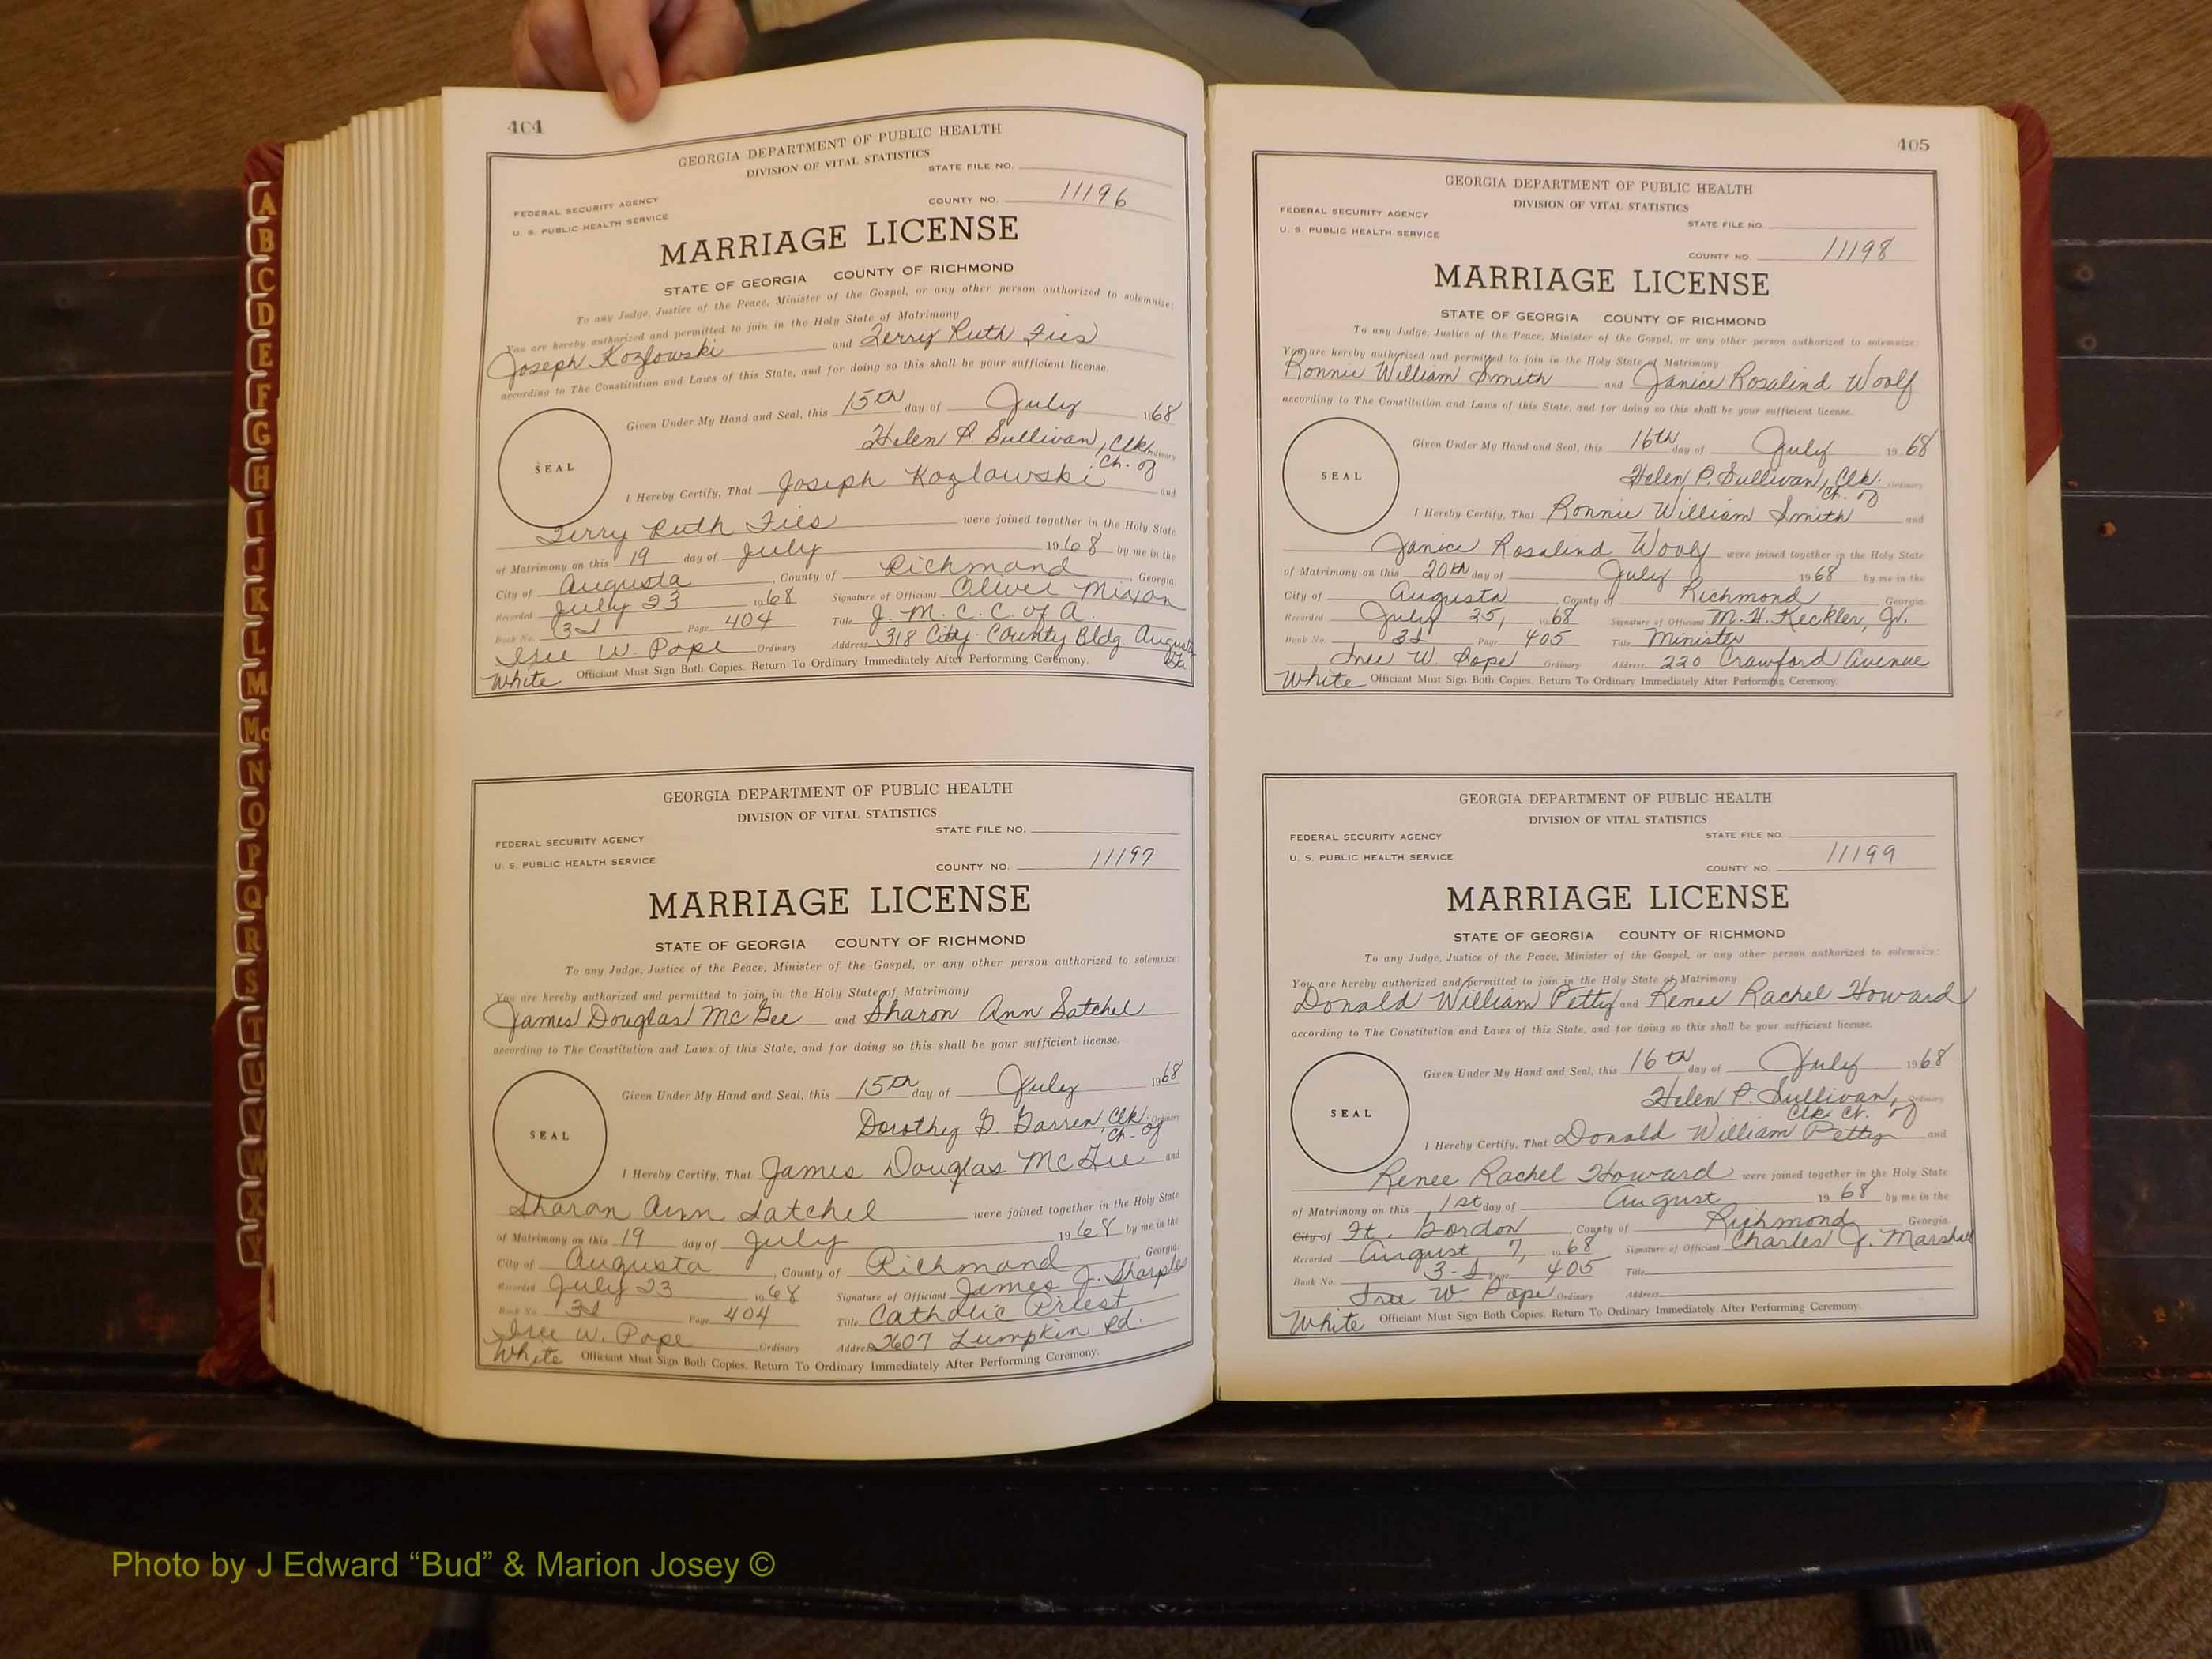 404
GEORGIA DEPARTMENT OF PUBLIC HEALTH
DIVISION OF VITAL STATISTICS
STATE FILE NO.
FEDERAL SECURITY AGENCY
U. S. PUBLIC HEALTH SERVICE
COUNTY NO. 11196
MARRIAGE LICENSE
STATE OF GEORGIA COUNTY OF RICHMOND
To any Judge, Justice of the Peace, Minister of the Gospel, or any other person authorized to solemnize:
You are hereby authorized and permitted to join in the Holy State of Matrimony
Joseph Kozlowski and Terry Ruth Fies
according to The Constitution and Laws of this State, and for doing so this shall be your sufficient license.
Given Under My Hand and Seal, this 15th day of July 1968
Helen P. Sullivan, Clk. Ordinary
Ct. of
SEAL
I Hereby Certify, That Joseph Kozlowski and
Terry Ruth Fies were joined together in the Holy State
of Matrimony on this 19 day of July 1968 by me in the
City of Augusta, County of Richmond, Georgia.
Recorded July 23 1968 Signature of Officiant Oliver Mixon
Book No. 3 Page 404 Title J. M. C. C. of A.
W. Pope Ordinary Address 318 City-County Bldg. Augusta
Ga
White Officiant Must Sign Both Copies. Return To Ordinary Immediately After Performing Ceremony.
GEORGIA DEPARTMENT OF PUBLIC HEALTH
DIVISION OF VITAL STATISTICS
STATE FILE NO.
FEDERAL SECURITY AGENCY
U. S. PUBLIC HEALTH SERVICE
COUNTY NO. 11197
MARRIAGE LICENSE
STATE OF GEORGIA COUNTY OF RICHMOND
To any Judge, Justice of the Peace, Minister of the Gospel, or any other person authorized to solemnize:
You are hereby authorized and permitted to join in the Holy State of Matrimony
James Douglas McGee and Sharon Ann Satchel
according to The Constitution and Laws of this State, and for doing so this shall be your sufficient license.
Given Under My Hand and Seal, this 15th day of July 1968
Dorothy G. Clk. Ordinary
Ct. of
SEAL
I Hereby Certify, That James Douglas McGee and
Sharon Ann Satchel were joined together in the Holy State
of Matrimony on this 19 day of July 1968 by me in the
City of Augusta, County of Richmond, Georgia.
Recorded July 23 1968 Signature of Officiant James J. Sharples
Book No. 3 Page 404 Title Catholic Priest
W. Pope Ordinary Address 2607 Lumpkin Rd.
White Officiant Must Sign Both Copies. Return To Ordinary Immediately After Performing Ceremony.
405
GEORGIA DEPARTMENT OF PUBLIC HEALTH
DIVISION OF VITAL STATISTICS
FEDERAL SECURITY AGENCY
STATE FILE NO.
U. S. PUBLIC HEALTH SERVICE
COUNTY NO. 11198
MARRIAGE LICENSE
STATE OF GEORGIA COUNTY OF RICHMOND
To any Judge, Justice of the Peace, Minister of the Gospel, or any other person authorized to solemnize:
You are hereby authorized and permitted to join in the Holy State of Matrimony
Ronnie William Smith and Janice Rosalind Woolf
according to The Constitution and Laws of this State, and for doing so this shall be your sufficient license.
Given Under My Hand and Seal, this 16th day of July 1968
Helen P. Sullivan, Clk. Ordinary
Ct. of
SEAL
I Hereby Certify, That Ronnie William Smith and
Janice Rosalind Woolf were joined together in the Holy State
of Matrimony on this 20th day of July 1968 by me in the
City of Augusta, County of Richmond Georgia.
Recorded July 25, 1968 Signature of Officiant M. H. Keckler, Jr.
Book No. 3 Page 405 Title Minister
W. Pope Ordinary Address 220 Crawford Avenue
White Officiant Must Sign Both Copies. Return To Ordinary Immediately After Performing Ceremony.
GEORGIA DEPARTMENT OF PUBLIC HEALTH
DIVISION OF VITAL STATISTICS
FEDERAL SECURITY AGENCY
STATE FILE NO.
U. S. PUBLIC HEALTH SERVICE
COUNTY NO. 11199
MARRIAGE LICENSE
STATE OF GEORGIA COUNTY OF RICHMOND
To any Judge, Justice of the Peace, Minister of the Gospel, or any other person authorized to solemnize:
You are hereby authorized and permitted to join in the Holy State of Matrimony
Donald William Petty and Renee Rachel Howard
according to The Constitution and Laws of this State, and for doing so this shall be your sufficient license.
Given Under My Hand and Seal, this 16th day of July 1968
Helen P. Sullivan, Ordinary
Clk. Ct. of
SEAL
I Hereby Certify, That Donald William Petty and
Renee Rachel Howard were joined together in the Holy State
of Matrimony on this 1st day of August 1968 by me in the
City of Ft. Gordon, County of Richmond Georgia.
Recorded August 7, 1968 Signature of Officiant Charles J. Marshall
Book No. 3- Page 405 Title
W. Pope Ordinary Address
White Officiant Must Sign Both Copies. Return To Ordinary Immediately After Performing Ceremony.
A
B
C
D
E
F
G
H
I
J
K
L
M
Mc
N
O
P
Q
R
S
T
U
V
W
X
Y
Photo by J Edward “Bud” & Marion Josey ©